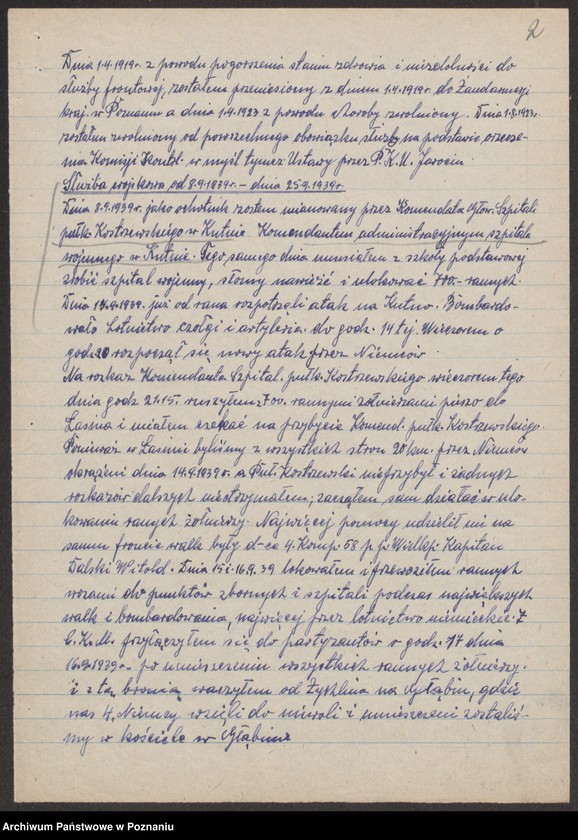 2
Dnia 1.4.1919r. z powodu pogorszenia stanu zdrowia i niezdolności do
służby frontowej, zostałem przeniesiony z dniem 1.4.1919r. do Żandarmerji
kraj. w Poznaniu a dnia 1.4.1923 z powodu choroby zwolniony. Dnia 1.8.1923r.
zostałem zwolniony od powszechnego obowiązku służby na podstawie orzecze-
nia Komisji Kontrl. w myśl tymcz. Ustawy przez P.K.U. Jarocin.
Służba wojskowa od 8.9.1939r. – dnia 25.9.1939r.
Dnia 8.9.1939r. jako ochotnik zostem mianowany przez Komendata Głów. Szpitali
pułk. Kostrzewskiego w Kutnie. Komendantem administracyjnym szpitala
wojennego w Kutnie. Tego samego dnia musiałem z szkoły podstawowej
zrobić szpital wojenny, słomy nawieźć i ulokować 700.- rannych.
Dnia 14.9.1939. już od rana rozpoczęli atak na Kutno. Bombardo-
wało Lotnictwo czołgi i artyleria do godz. 14 tej. Wieczorem o
godz. 20 rozpoczął się nowy atak przez Niemców.
Na rozkaz Komendanta Szpital. pułk. Kostrzewskiego wieczorem tego
dnia godz 21.15. ruszyłem z 700. rannymi żołnierzami pieszo do
Łasina i miałem czekać na przybycie Komend. pułk. Kostrzewskiego.
Ponieważ w Łasinie byliśmy z wszystkich stron 20 km. przez Niemców
okrążeni dnia 14.9.1939r. a Puł. Kostrzewski nieprzybył i żadnych
rozkazów dalszych nieotrzymałem; zacząłem sam działać w ulo-
kowaniu rannych żołnierzy. Najwięcej pomocy udzielił mi na
samym froncie walk były d-ca 4. Komp. 58 p.p. Wielkp. Kapitan
Dalski Witold. Dnia 15 i 16.9.39 lokowałem i przewoziłem rannych
wozami do punktów zbornych i szpitali podczas największych
walk i bombardowania, najwięcej przez lotnictwo niemieckie. Z
C.K.M. przyłączyłem się do partyzantów o godz. 17 dnia
16.9.1939r. – po umieszczeniu wszystkich rannych żołnierzy.
i z tą bronią walczyłem od Żychlina na Głąbin, gdzie
nas 4, Niemcy wzięli do niewoli i umieszczeni zostaliś-
my w kościele w Głąbinie
Archiwum Państwowe w Poznaniu